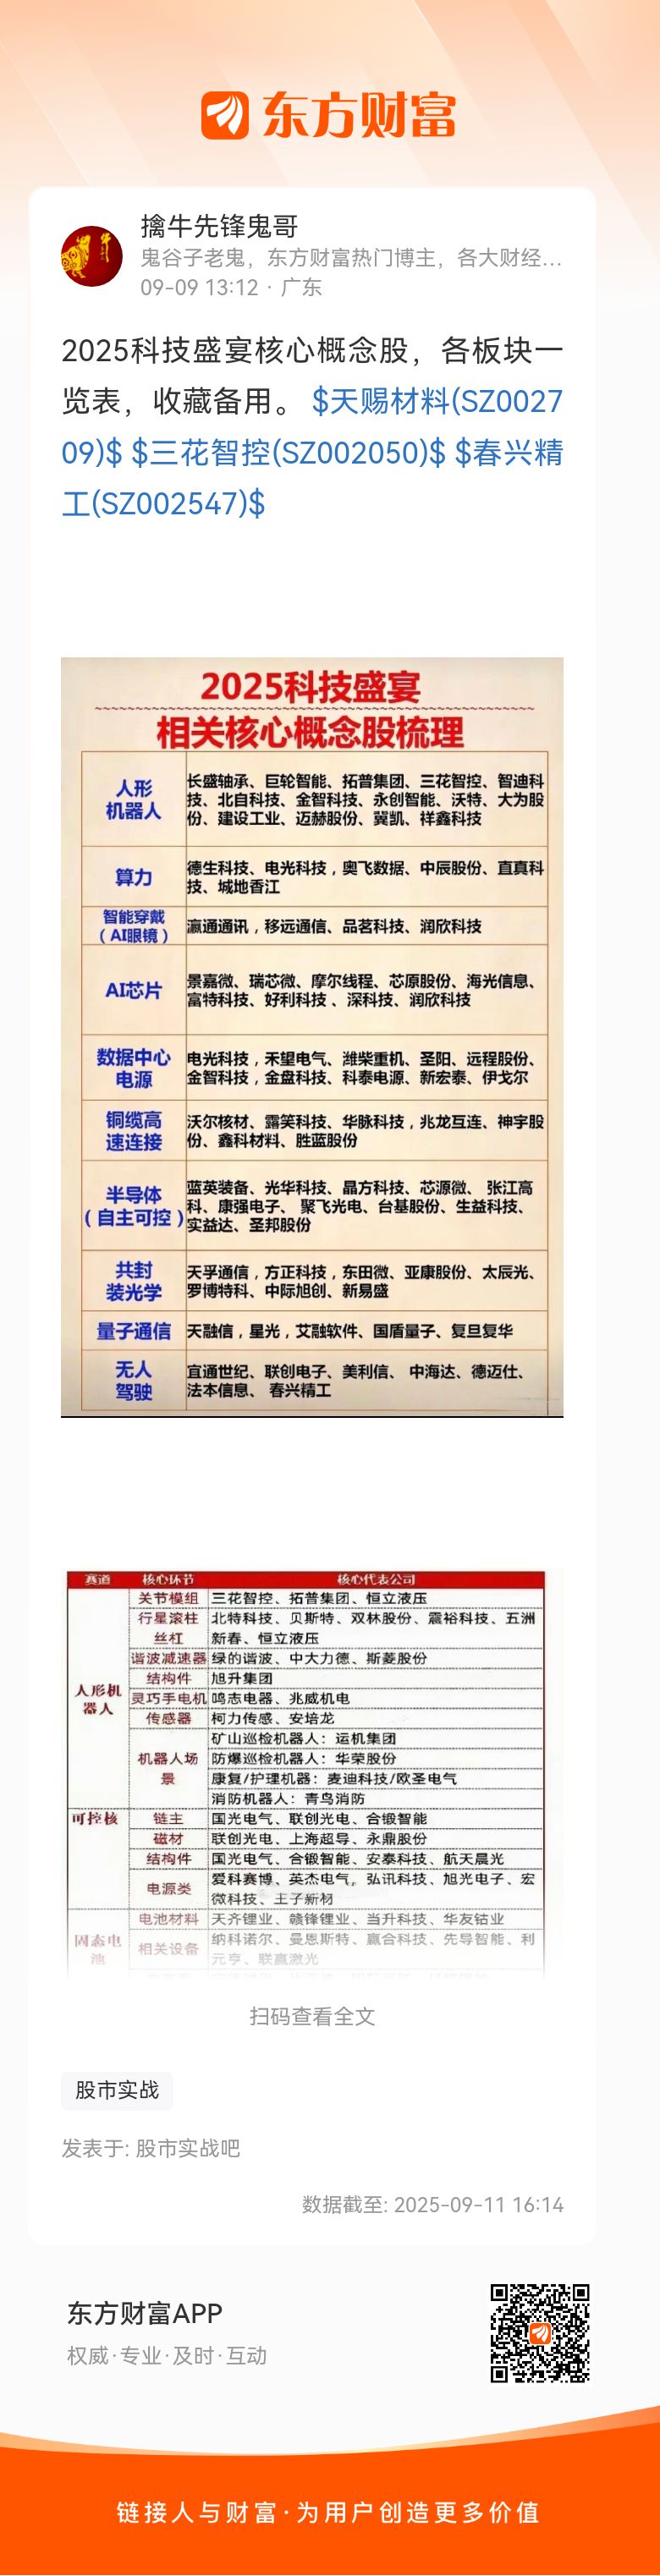 东方财富
擒牛先锋鬼哥
鬼谷子老鬼，东方财富热门博主，各大财经...
09-09 13:12 · 广东
2025科技盛宴核心概念股，各板块一
览表，收藏备用。 $天赐材料(SZ0027
09)$ $三花智控(SZ002050)$ $春兴精
工(SZ002547)$
2025科技盛宴
相关核心概念股梳理
人形
机器人
长盛轴承、巨轮智能、拓普集团、三花智控、智迪科
技、北自科技、金智科技、永创智能、沃特、大为股
份、建设工业、迈赫股份、冀凯、祥鑫科技
算力
德生科技、电光科技，奥飞数据、中辰股份、直真科
技、城地香江
智能穿戴
（AI眼镜）
瀛通通讯，移远通信、品茗科技、润欣科技
AI芯片
景嘉微、瑞芯微、摩尔线程、芯原股份、海光信息、
富特科技、好利科技 、深科技、润欣科技
数据中心
电源
电光科技，禾望电气、潍柴重机、圣阳、远程股份、
金智科技，金盘科技、科泰电源、新宏泰、伊戈尔
铜缆高
速连接
沃尔核材、露笑科技、华脉科技，兆龙互连、神宇股
份、鑫科材料、胜蓝股份
半导体
（自主可控）
蓝英装备、光华科技、晶方科技、芯源微、 张江高
科、康强电子、 聚飞光电、台基股份、生益科技、
实益达、圣邦股份
共封
装光学
天孚通信，方正科技，东田微、亚康股份、太辰光、
罗博特科、中际旭创、新易盛
量子通信
天融信，星光，艾融软件、国盾量子、复旦复华
无人
驾驶
宜通世纪、联创电子、美利信、 中海达、德迈仕、
法本信息、 春兴精工
赛道 核心环节 核心代表公司
人形机
器人
关节模组 三花智控、拓普集团、恒立液压
行星滚柱 北特科技、贝斯特、双林股份、震裕科技、五洲
丝杠 新春、恒立液压
谐波减速器 绿的谐波、中大力德、斯菱股份
结构件 旭升集团
灵巧手电机 鸣志电器、兆威机电
传感器 柯力传感、安培龙
机器人场
景
矿山巡检机器人：运机集团
防爆巡检机器人：华荣股份
康复/护理机器：麦迪科技/欧圣电气
消防机器人：青鸟消防
可控核
链主 国光电气、联创光电、合锻智能
磁材 联创光电、上海超导、永鼎股份
结构件 国光电气、合锻智能、安泰科技、航天晨光
电源类 爱科赛博、英杰电气，弘讯科技、旭光电子、宏
微科技、王子新材
固态电
池
电池材料 天齐锂业、赣锋锂业、当升科技、华友钴业
相关设备 纳科诺尔、曼恩斯特、赢合科技、先导智能、利
元亨、联赢激光
扫码查看全文
股市实战
发表于: 股市实战吧
数据截至: 2025-09-11 16:14
东方财富APP
权威·专业·及时·互动
链接人与财富·为用户创造更多价值